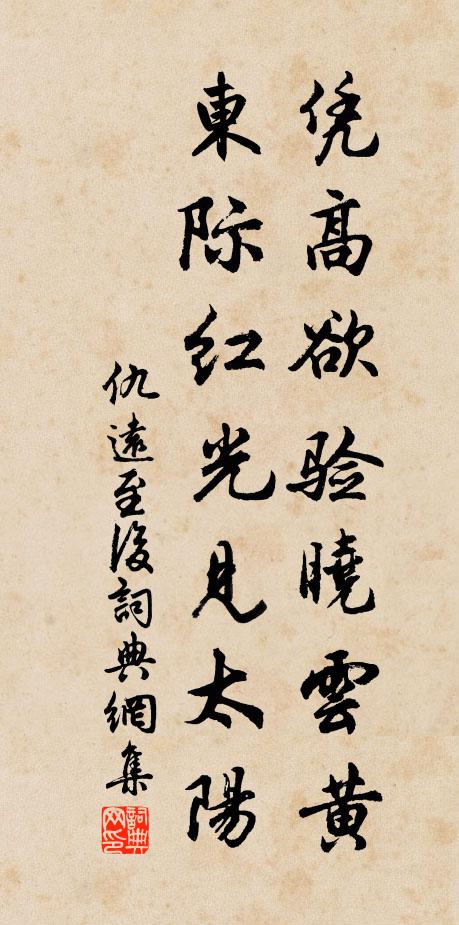 凭高欲验曉雲黄
東际红光見太陽
仇遠至後詞典網集
詞典網印